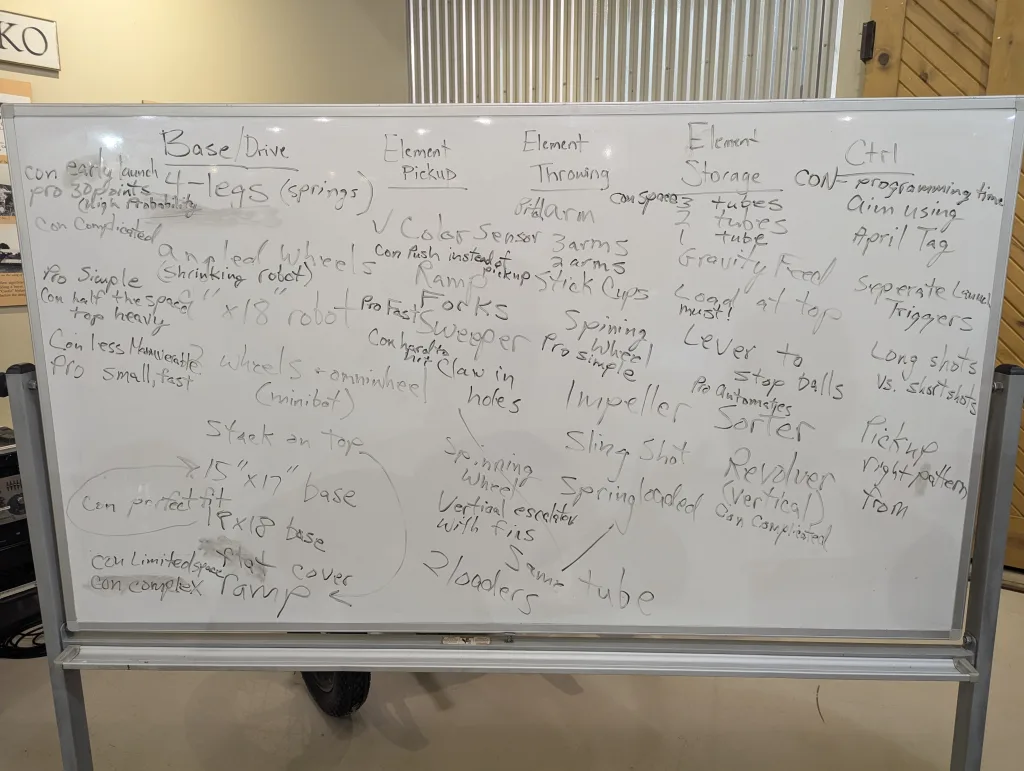 KO
Base/Drive
con early launch
pro 30 points
(high Probability
4-legs (springs)
con Complicated
angled wheels
(shrinking robot)
Pro Simple
Con half the space
top heavy
"x18" robot
Con less Manuverable
Pro small, fast
2 wheels + omniwheel
(minibot)
Stack on top
15"x17" base
Con perfect fit
18x18 base
con Limited space
flat cover
con complex
ramp
Element
Pickup
V Color Sensor
Con Push instead of
pickup
Ramp
Forks
Pro Fast
Sweeper
Con hard to
Claw in
holes
Spinning
Wheel
Vertical escalator
with fins
2 loaders
Element
Throwing
arm
3 arms
2 arms
Stick Cups
Spining
Wheel
Pro simple
Impeller
Sling Shot
Springloaded
Same tube
Element
Storage
con space
3 tubes
2 tubes
1 tube
Gravity Feed
Load at top
must!
Lever to
stop balls
Pro Automatics
Sorter
Revolver
(vertical)
Con Complicated
Ctrl
CON- programming time
aim using
April Tag
Seperate Launch
Triggers
Long shots
vs. short shots
Pickup
right pattern
from